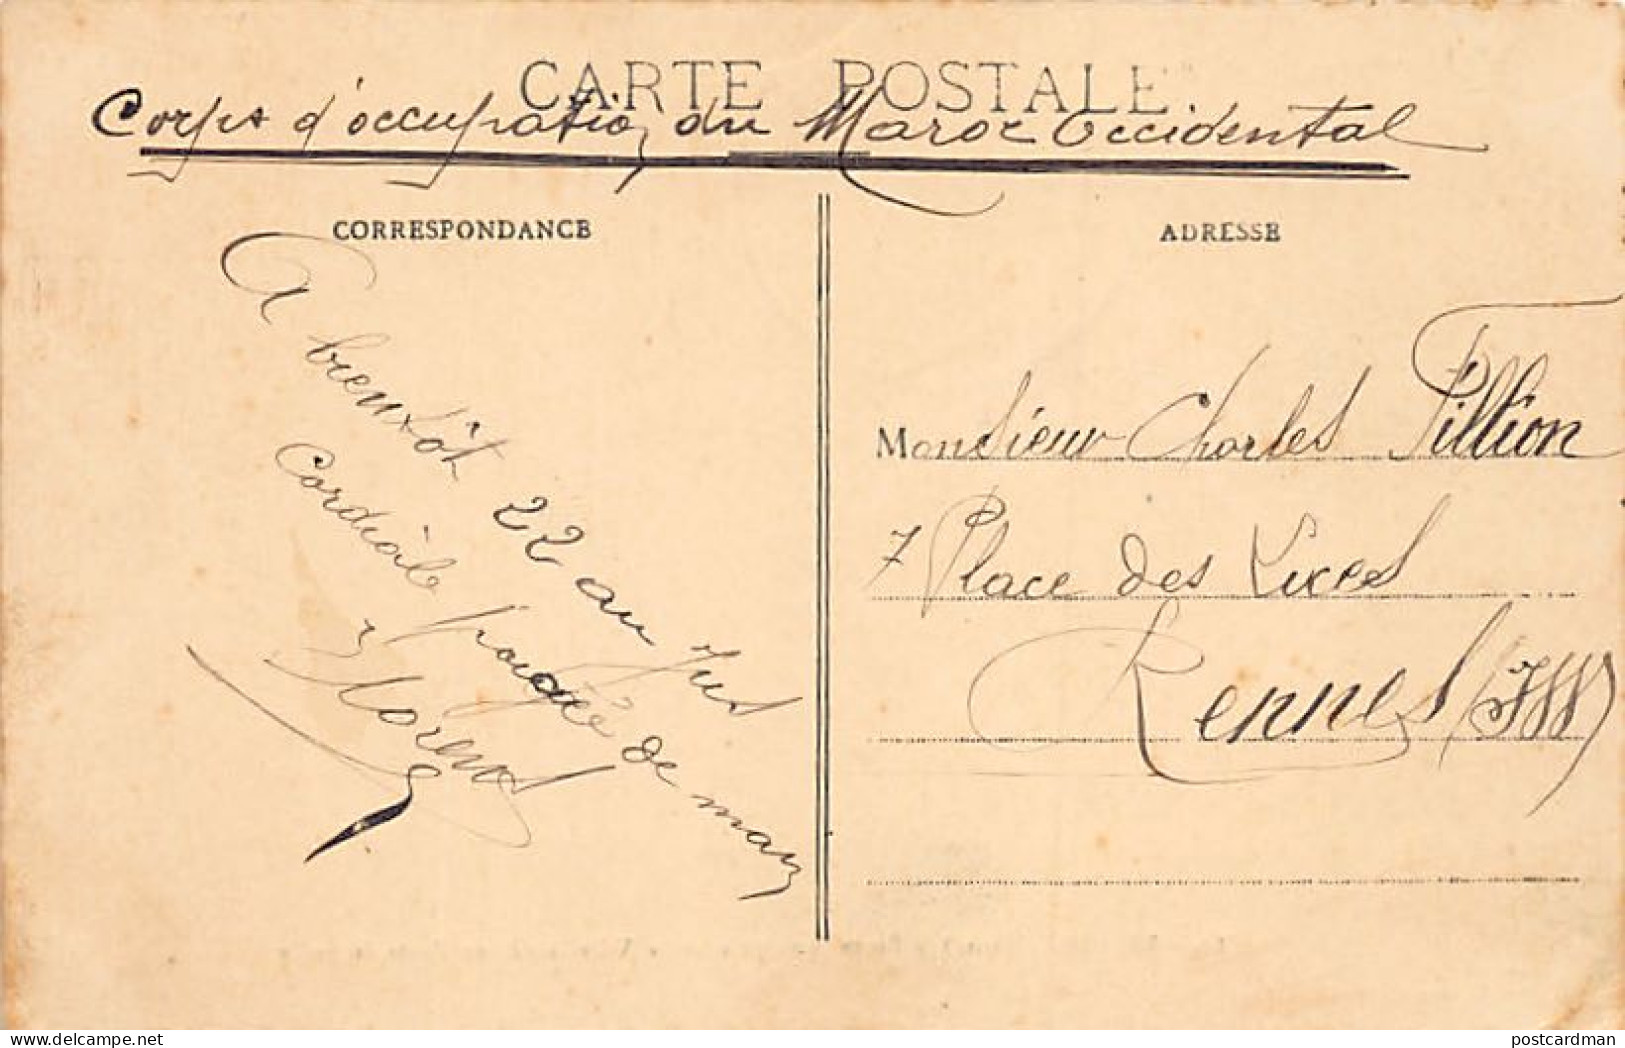 CARTE POSTALE
Corps d'occupation du Maroc Occidental
CORRESPONDANCE
A bientôt 22 au Jus
Cordiale poignée de main
ADRESSE
Monsieur Charles Pillion
7 Place des Lices
Rennes (I&V)
postcardman